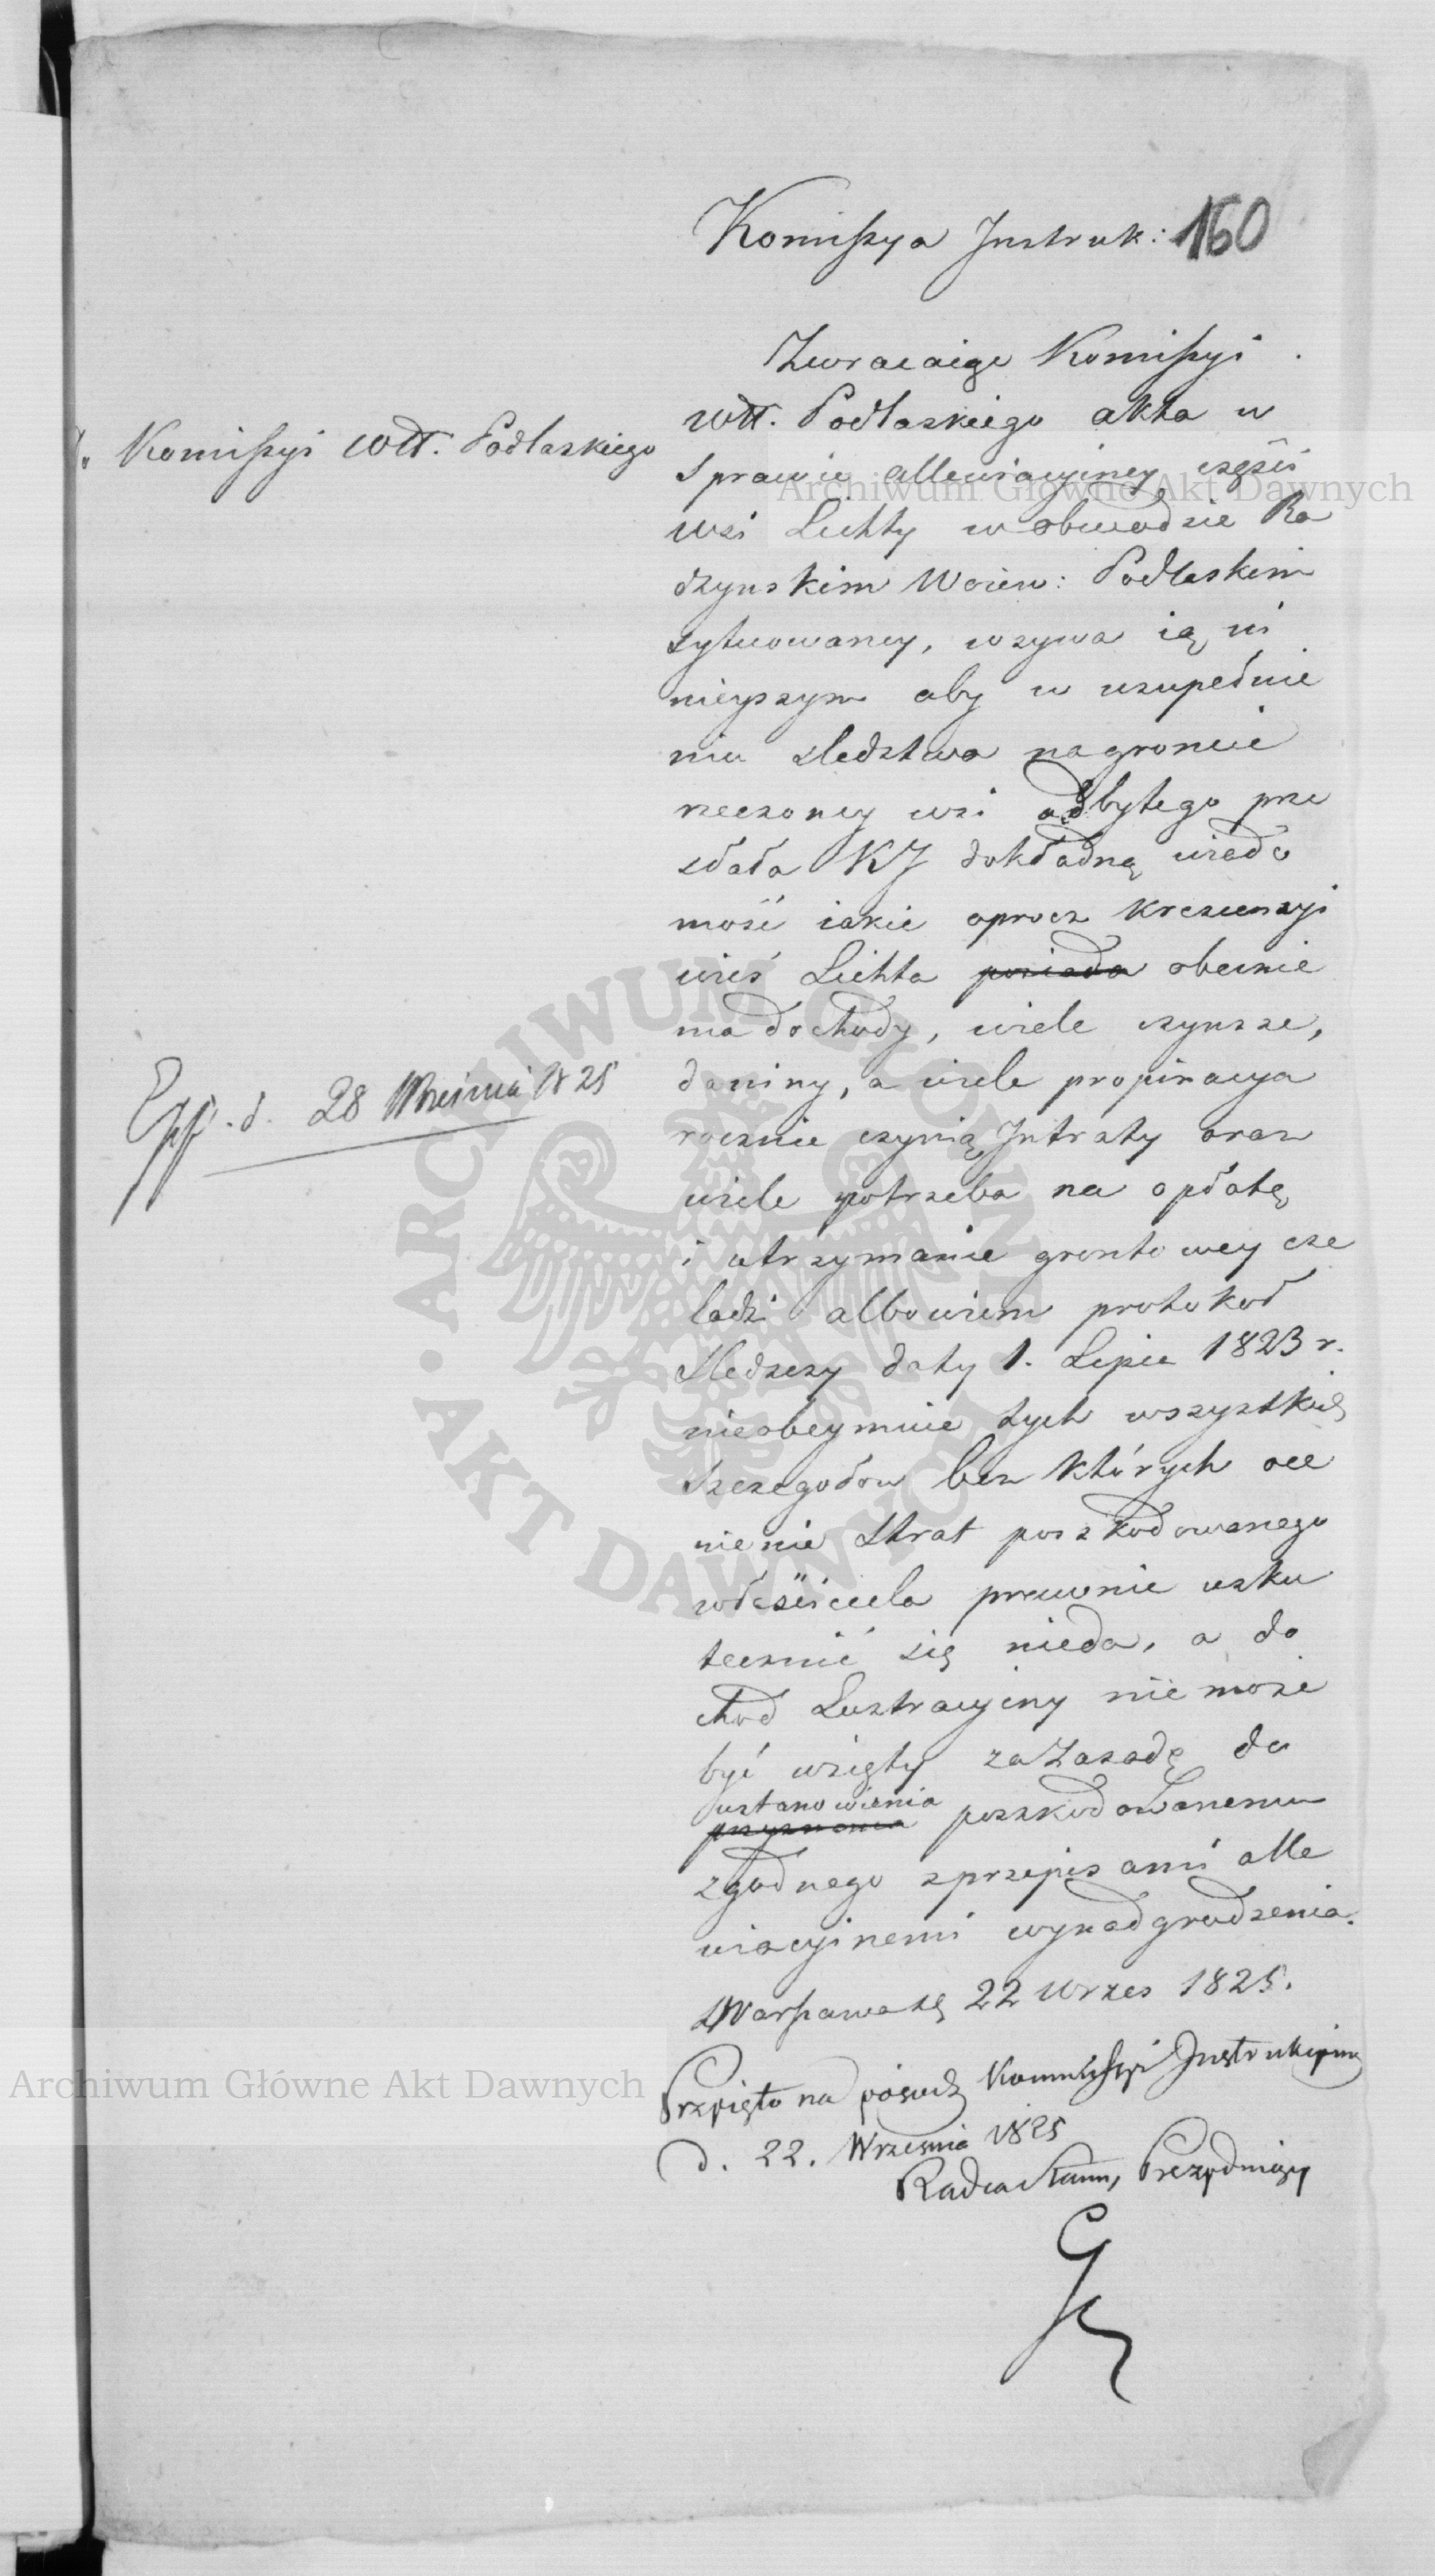 160
Komissya Instruk:
Komissyi Wtt. Podlaskiego
Zwracaiąc Komissyi
Wtt. Podlaskiego akta w
sprawie allewiacyiney części
wsi Lichty w obwodzie Ra
dzynskim Woiew: Podlaskim
sytuowaney, wzywa ią ni
nieyszym aby w uzupełnie
niu sledztwa na groncie
rzeczoney wsi odbytego prze
słała KJ dokładną wiado
mość iakie oprocz krescencyi
wieś Lichta posiada obecnie
ma dochody, wiele czynsze,
daniny, a wiele propinacya
rocznie czynią Intraty oraz
wiele potrzeba na opłatę
i utrzymanie grontowey cze
ladzi albowiem protokoł
sledczy daty 1. Lipca 1823 r.
nieobeymuie tych wszystkich
szczegołow bez których oce
nienie strat poszkodowanego
właściciela prawnie usku
tecznić się nieda, a do
chod Lustracyiny nie może
być wzięty za zasadę do
ustanowienia
przyznania poszkodowanemu
zgodnego z przepisami alle
wiacyinemi wynadgrodzenia.
w Warszawie dą 22 Wrzes 1825.
Exp. d. 28 Wrześnią 1825
Przyięto na posiedz Kommissyi Instrukcyiney
d. 22. Wrzesnia 1825
Radca Stanu, Prezyduiący
Archiwum Główne Akt Dawnych
Archiwum Główne Akt Dawnych
ARCHIWUM GŁÓWNE AKT DAWNYCH